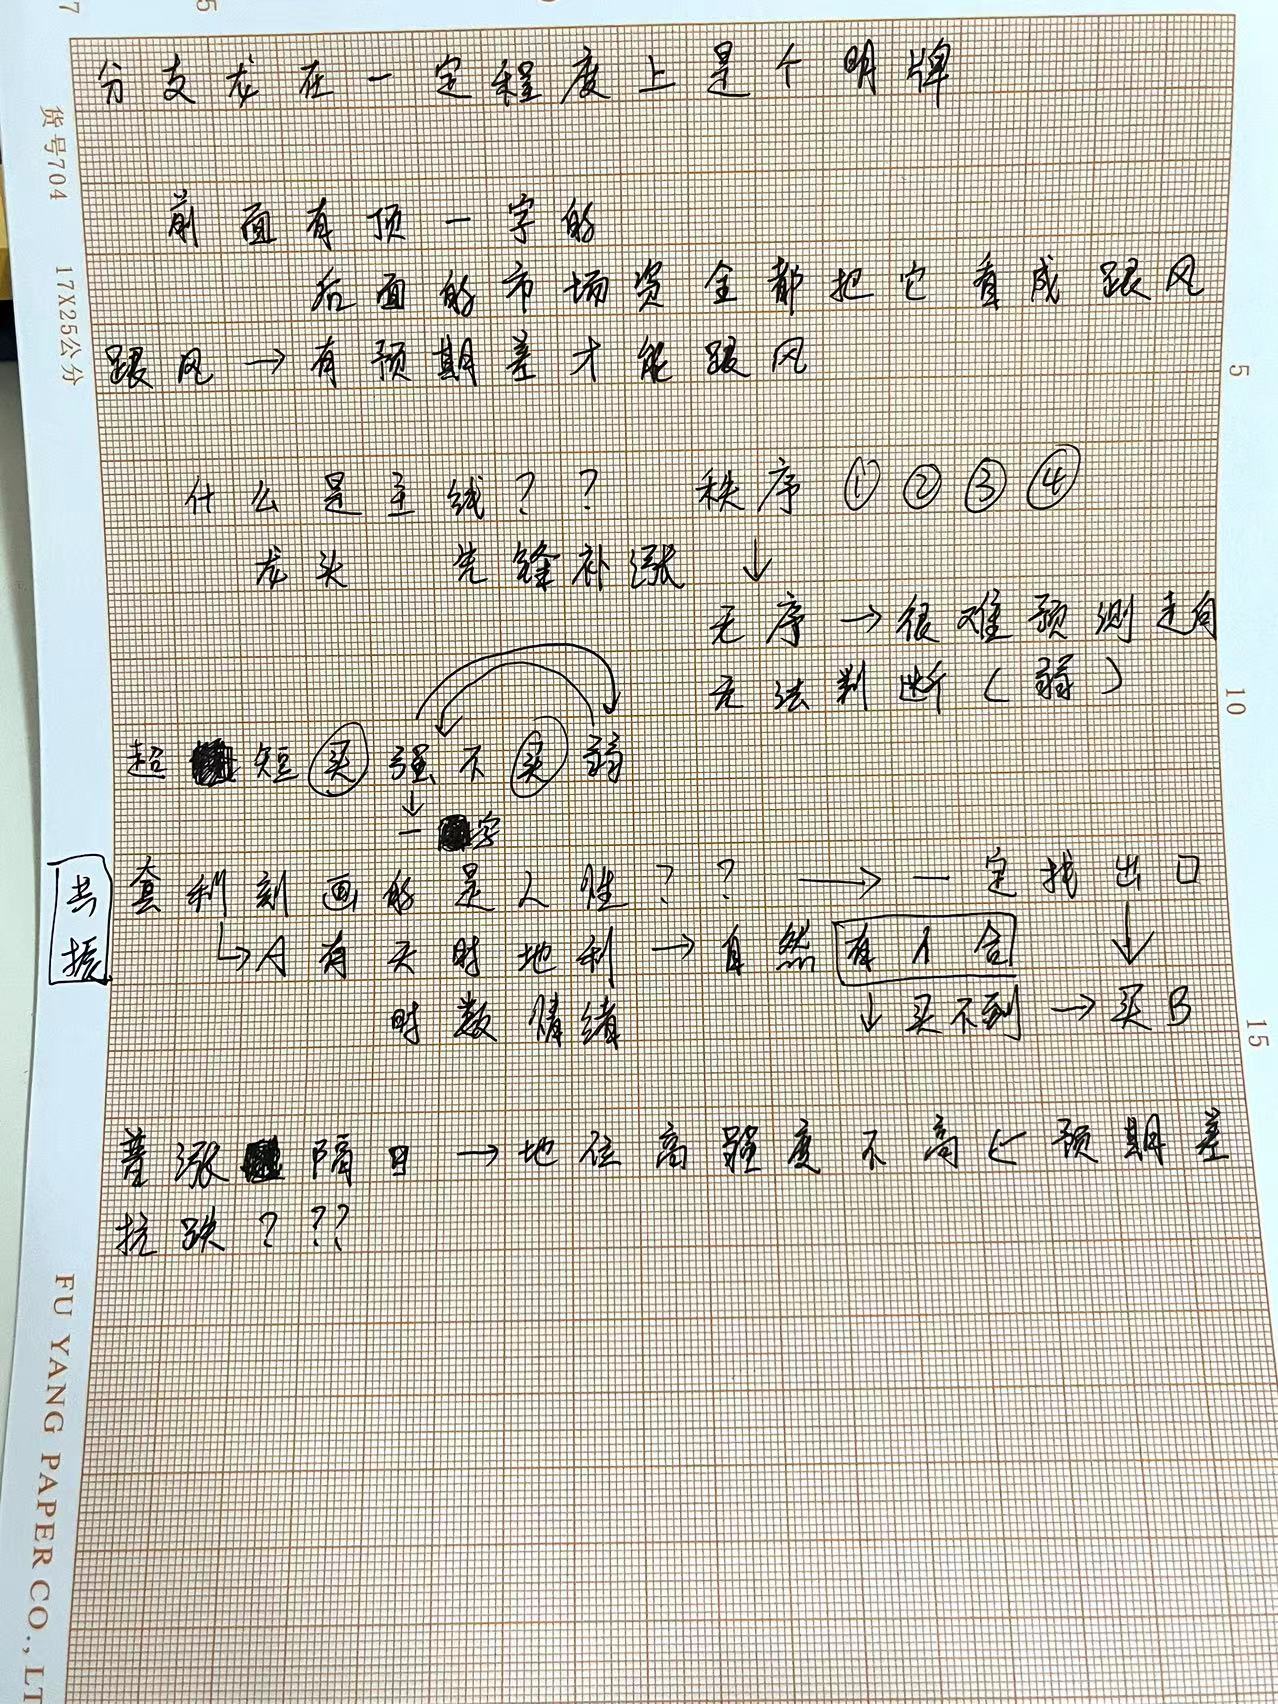 7
5
货号704 17X25公分
分支龙在一定程度上是个明牌
前面有顶一字的
后面的市场资金都把它看成跟风
跟风→有预期差才能跟风
5
什么是主线？？ 秩序①②③④
龙头 先锋补涨 ↓
无序→很难预测走向
无法判断（弱）
10
超短买强不买弱
↓
一字
共振
套利刻画的是人性？？→一定找出口
↳A有天时地利→自然有人合 ↓
时数情绪 ↓买不到→买B
15
普涨隔日→地位高强度不高←预期差
抗跌？？？
FU YANG PAPER CO., LT